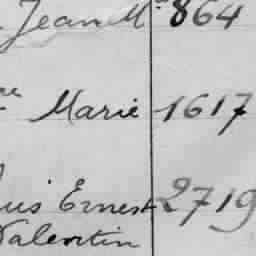 Jean Mce 864
Marie 1617
Ernest 2719
Valentin